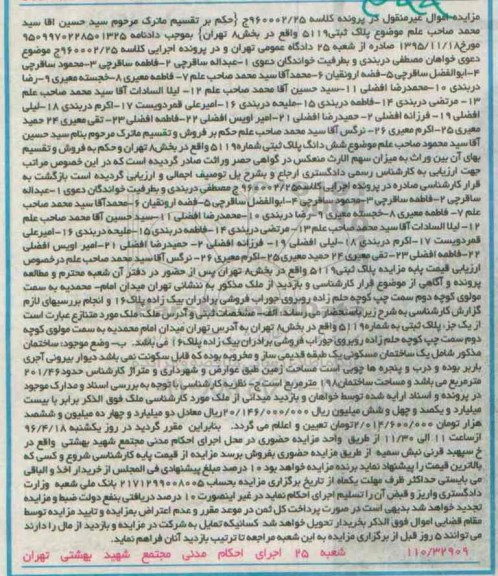 مزایده اموال غیرمنقول در پرونده کلاسه ۹۶۰۰۰۲/۲۵ج {حکم بر تقسیم ماترک مرحوم سید حسین آقا سید
محمد صاحب علم موضوع پلاک ثبتی۵۱۱۹ واقع در بخش۸ تهران} بموجب دادنامه ۹۵۰۹۹۷۰۲۲۸۵۰۱۳۲۵
مورخ۱۳۹۵/۱۱/۱۸ صادره از شعبه ۲۵ دادگاه عمومی تهران و در پرونده اجرایی کلاسه ۹۶۰۰۰۲/۲۵ج موضوع
دعوی خواهان مصطفی دربندی و بطرفیت خواندگان دعوی ۱-عبداله ساقرچی ۲-فاطمه ساقرچی ۳-محمود ساقرچی
۴-ابوالفضل ساقرچی۵-فضه ارونقیان ۶-محمدآقا سید محمد صاحب علم ۷- فاطمه معیری ۸-خجسته معیری ۹-رضا
دربندی ۱۰-محمدرضا افضلی ۱۱-سید حسین آقا محمد صاحب علم ۱۲- لیلا السادات آقا سید محمد صاحب علم
۱۳- مرتضی دربندی ۱۴-فاطمه دربندی ۱۵-ملیحه دربندی ۱۶-امیرعلی قمردوست ۱۷-اکرم دربندی ۱۸-لیلی
افضلی ۱۹- فرزانه افضلی ۲۰- حمیدرضا افضلی ۲۱-امیر اویس افضلی ۲۲-فاطمه افضلی ۲۳- تقی معیری ۲۴ حمید
معیری ۲۵-اکرم معیری ۲۶- نرگس آقا سید محمد صاحب علم حکم بر فروش و تقسیم ماترک مرحوم بنام سید حسین
آقا سید محمود صاحب علم موضوع شش دانگ پلاک ثبتی شماره۵۱۱۹ واقع در بخش۸ تهران و حکم به فروش و تقسیم
بهای آن بین وراث به میزان سهم الارث منعکس در گواهی حصر وراثت صادر گردیده است که در این خصوص مراتب
جهت ارزیابی به کارشناس رسمی دادگستری ارجاع و بشرح ذیل توصیف اجمالی و ارزیابی گردیده است بازگشت به
قرار کارشناسی صادره در پرونده اجرایی کلاسه۹۶۰۰۰۲/۲۵ ج مصطفی دربندی و بطرفیت خواندگان دعوی ۱-عبداله
ساقرچی ۲-فاطمه ساقرچی ۳-محمود ساقرچی ۴-ابوالفضل ساقرچی ۵-فضه ارونقیان ۶-محمدآقا سید محمد صاحب
علم ۷- فاطمه معیری ۸-خجسته معیری ۹-رضا دربندی ۱۰-محمدرضا افضلی ۱۱-سید حسین آقا محمد صاحب علم
۱۲- لیلا السادات آقا سید محمد صاحب علم ۱۳- مرتضی دربندی ۱۴-فاطمه دربندی ۱۵-ملیحه دربندی ۱۶-امیرعلی
قمردوست ۱۷-اکرم دربندی ۱۸-لیلی افضلی ۱۹- فرزانه افضلی ۲۰- حمیدرضا افضلی ۲۱-امیر اویس افضلی
۲۲-فاطمه افضلی ۲۳- تقی معیری ۲۴ حمید معیری ۲۵-اکرم معیری ۲۶- نرگس آقا سید محمد صاحب علم درخصوص
ارزیابی قیمت پایه مزایده پلاک ثبتی۵۱۱۹ واقع در بخش۸ تهران پس از حضور در دفتر آن شعبه محترم و مطالعه
پرونده و آگاهی از موضوع قرار کارشناسی و بازدید از ملک مذکور به نشانی تهران میدان امام- محمدیه به سمت
مولوی کوچه دوم سمت چپ کوچه حلم زاده روبروی جوراب فروشی برادران بیک زاده پلاک۱۶ و انجام بررسیهای لازم
گزارش کارشناسی به شرح زیر باستحضار می رساند: الف- مشخصات ثبتی و آدرس ملک: ملک مورد متنازع عبارت است
از یک جزء پلاک ثبتی به شماره۵۱۱۹ واقع در بخش۸ تهران به آدرس تهران میدان امام محمدیه به سمت مولوی کوچه
دوم سمت چپ کوچه حلم زاده روبروی جوراب فروشی برادران بیک زاده پلاک۱۶ می باشند. ب- وضع موجود: ساختمان
مذکور شامل یک ساختمان مسکونی یک طبقه قدیمی ساز و مخروبه بوده که قابل سکونت نمی باشد دیوار بیرونی آجری
باربر بوده و درب و پنجره ها چوبی است مساحت زمین طبق عوارض و شهرداری و متراژ کارشناس حدود۲۰۱/۴۶
مترمربع می باشد و مساحت ساختمان۱۹۸ مترمربع است ج- نظریه کارشناسی با توجه به بررسی اسناد و مدارک موجود
در پرونده و اسناد ارایه شده توسط خواهان و بازدید میدانی از ملک مورد کارشناسی ملک فوق الذکر برابر با بیست
میلیارد و یکصد و چهل و شش میلیون ریال ۲۰/۱۴۶/۰۰۰/۰۰۰ریال معادل دو میلیارد و چهار ده میلیون و ششصد
هزار تومان ۲/۰۱۴/۶۰۰/۰۰۰تومان تعیین و اعلام می گردد. بنابراین مقرر گردید در روز یکشنبه ۹۶/۴/۱۸
ازساعت ۱۱ الی ۱۱/۳۰ از طریق واحد مزایده حضوری در محل اجرای احکام مدنی مجتمع شهید بهشتی واقع در
خ سپهبد قرنی نبش سمیه از طریق مزایده حضوری بفروش برسد مزایده از قیمت پایه کارشناسی شروع و کسی که
بالاترین قیمت را پیشنهاد نماید برنده مزایده خواهد بود ۱۰ درصد مبلغ پیشنهادی فی المجلس از خریدار اخذ و الباقی
می بایستی حداکثر ظرف مهلت یکماه از تاریخ برگزاری مزایده بحساب ۲۱۷۱۲۹۹۰۰۸۰۰۵ بانک ملی شعبه وزارت
دادگستری واریز و قبض آن را تسلیم اجرای احکام نماید در غیر اینصورت ۱۰ درصد دریافتی بنفع دولت ضبط و مزایده
تجدید خواهد شد بدیهی است در صورت پرداخت کل ثمن در موعد مقرر و عدم اعتراض بمزایده و تایید مزایده توسط
مقام قضایی اموال فوق الذکر بخریدار تحویل خواهد شد کسانیکه تمایل به شرکت در مزایده و بازدید از مال را دارند
می توانند ۵ روز قبل از برگزاری مزایده به این شعبه مراجعه تا ترتیب بازدید آنان فراهم نماید.
۱۱۰/۳۲۹۰۹ شعبه ۲۵ اجرای احکام مدنی مجتمع شهید بهشتی تهران